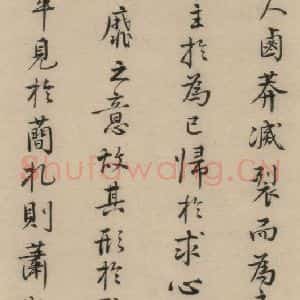 人鹵莽滅裂而為
主於為已歸於求心
靡之意故其形於
年見於蕳札則蕭
Shufawang.CN